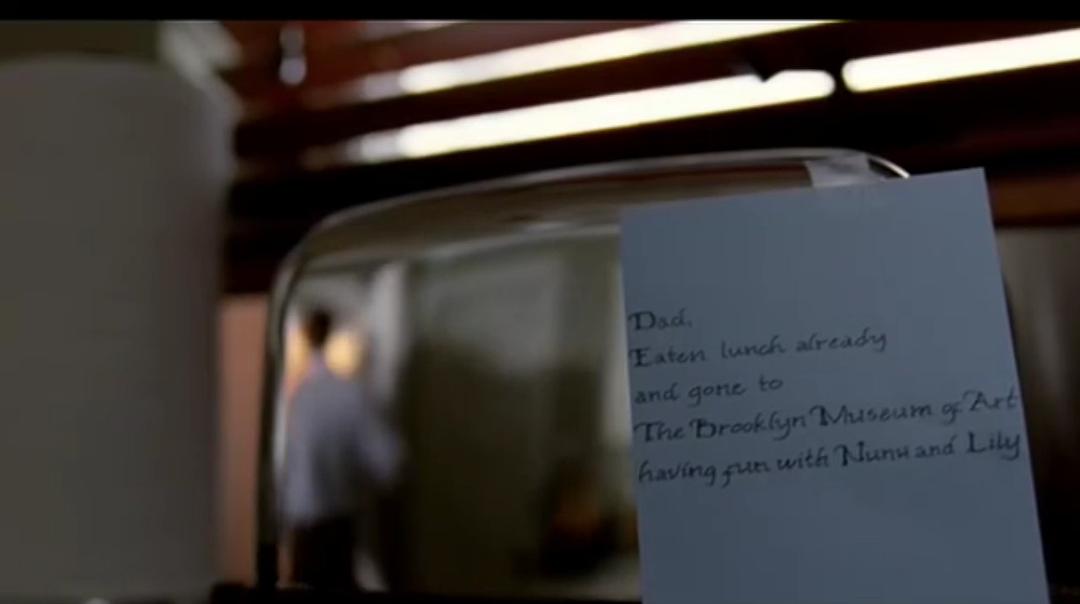 Dad,
Eaten lunch already
and gone to
The Brooklyn Museum of Art
having fun with Nunu and Lily